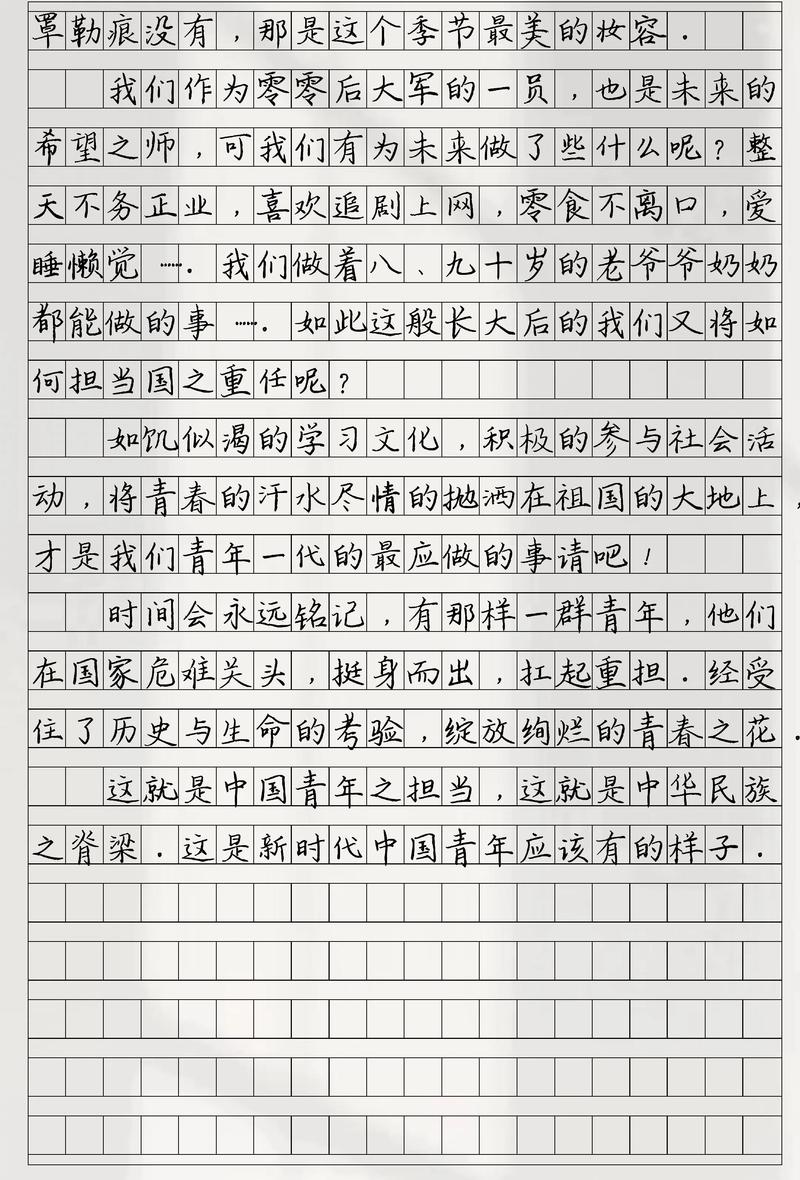 罩勒痕没有，那是这个季节最美的妆容．
我们作为零零后大军的一员，也是未来的
希望之师，可我们有为未来做了些什么呢？整
天不务正业，喜欢追剧上网，零食不离口，爱
睡懒觉……．我们做着八、九十岁的老爷爷奶奶
都能做的事……．如此这般长大后的我们又将如
何担当国之重任呢？
如饥似渴的学习文化，积极的参与社会活
动，将青春的汗水尽情的抛洒在祖国的大地上，
才是我们青年一代的最应做的事请吧！
时间会永远铭记，有那样一群青年，他们
在国家危难关头，挺身而出，扛起重担．经受
住了历史与生命的考验，绽放绚烂的青春之花．
这就是中国青年之担当，这就是中华民族
之脊梁．这是新时代中国青年应该有的样子．